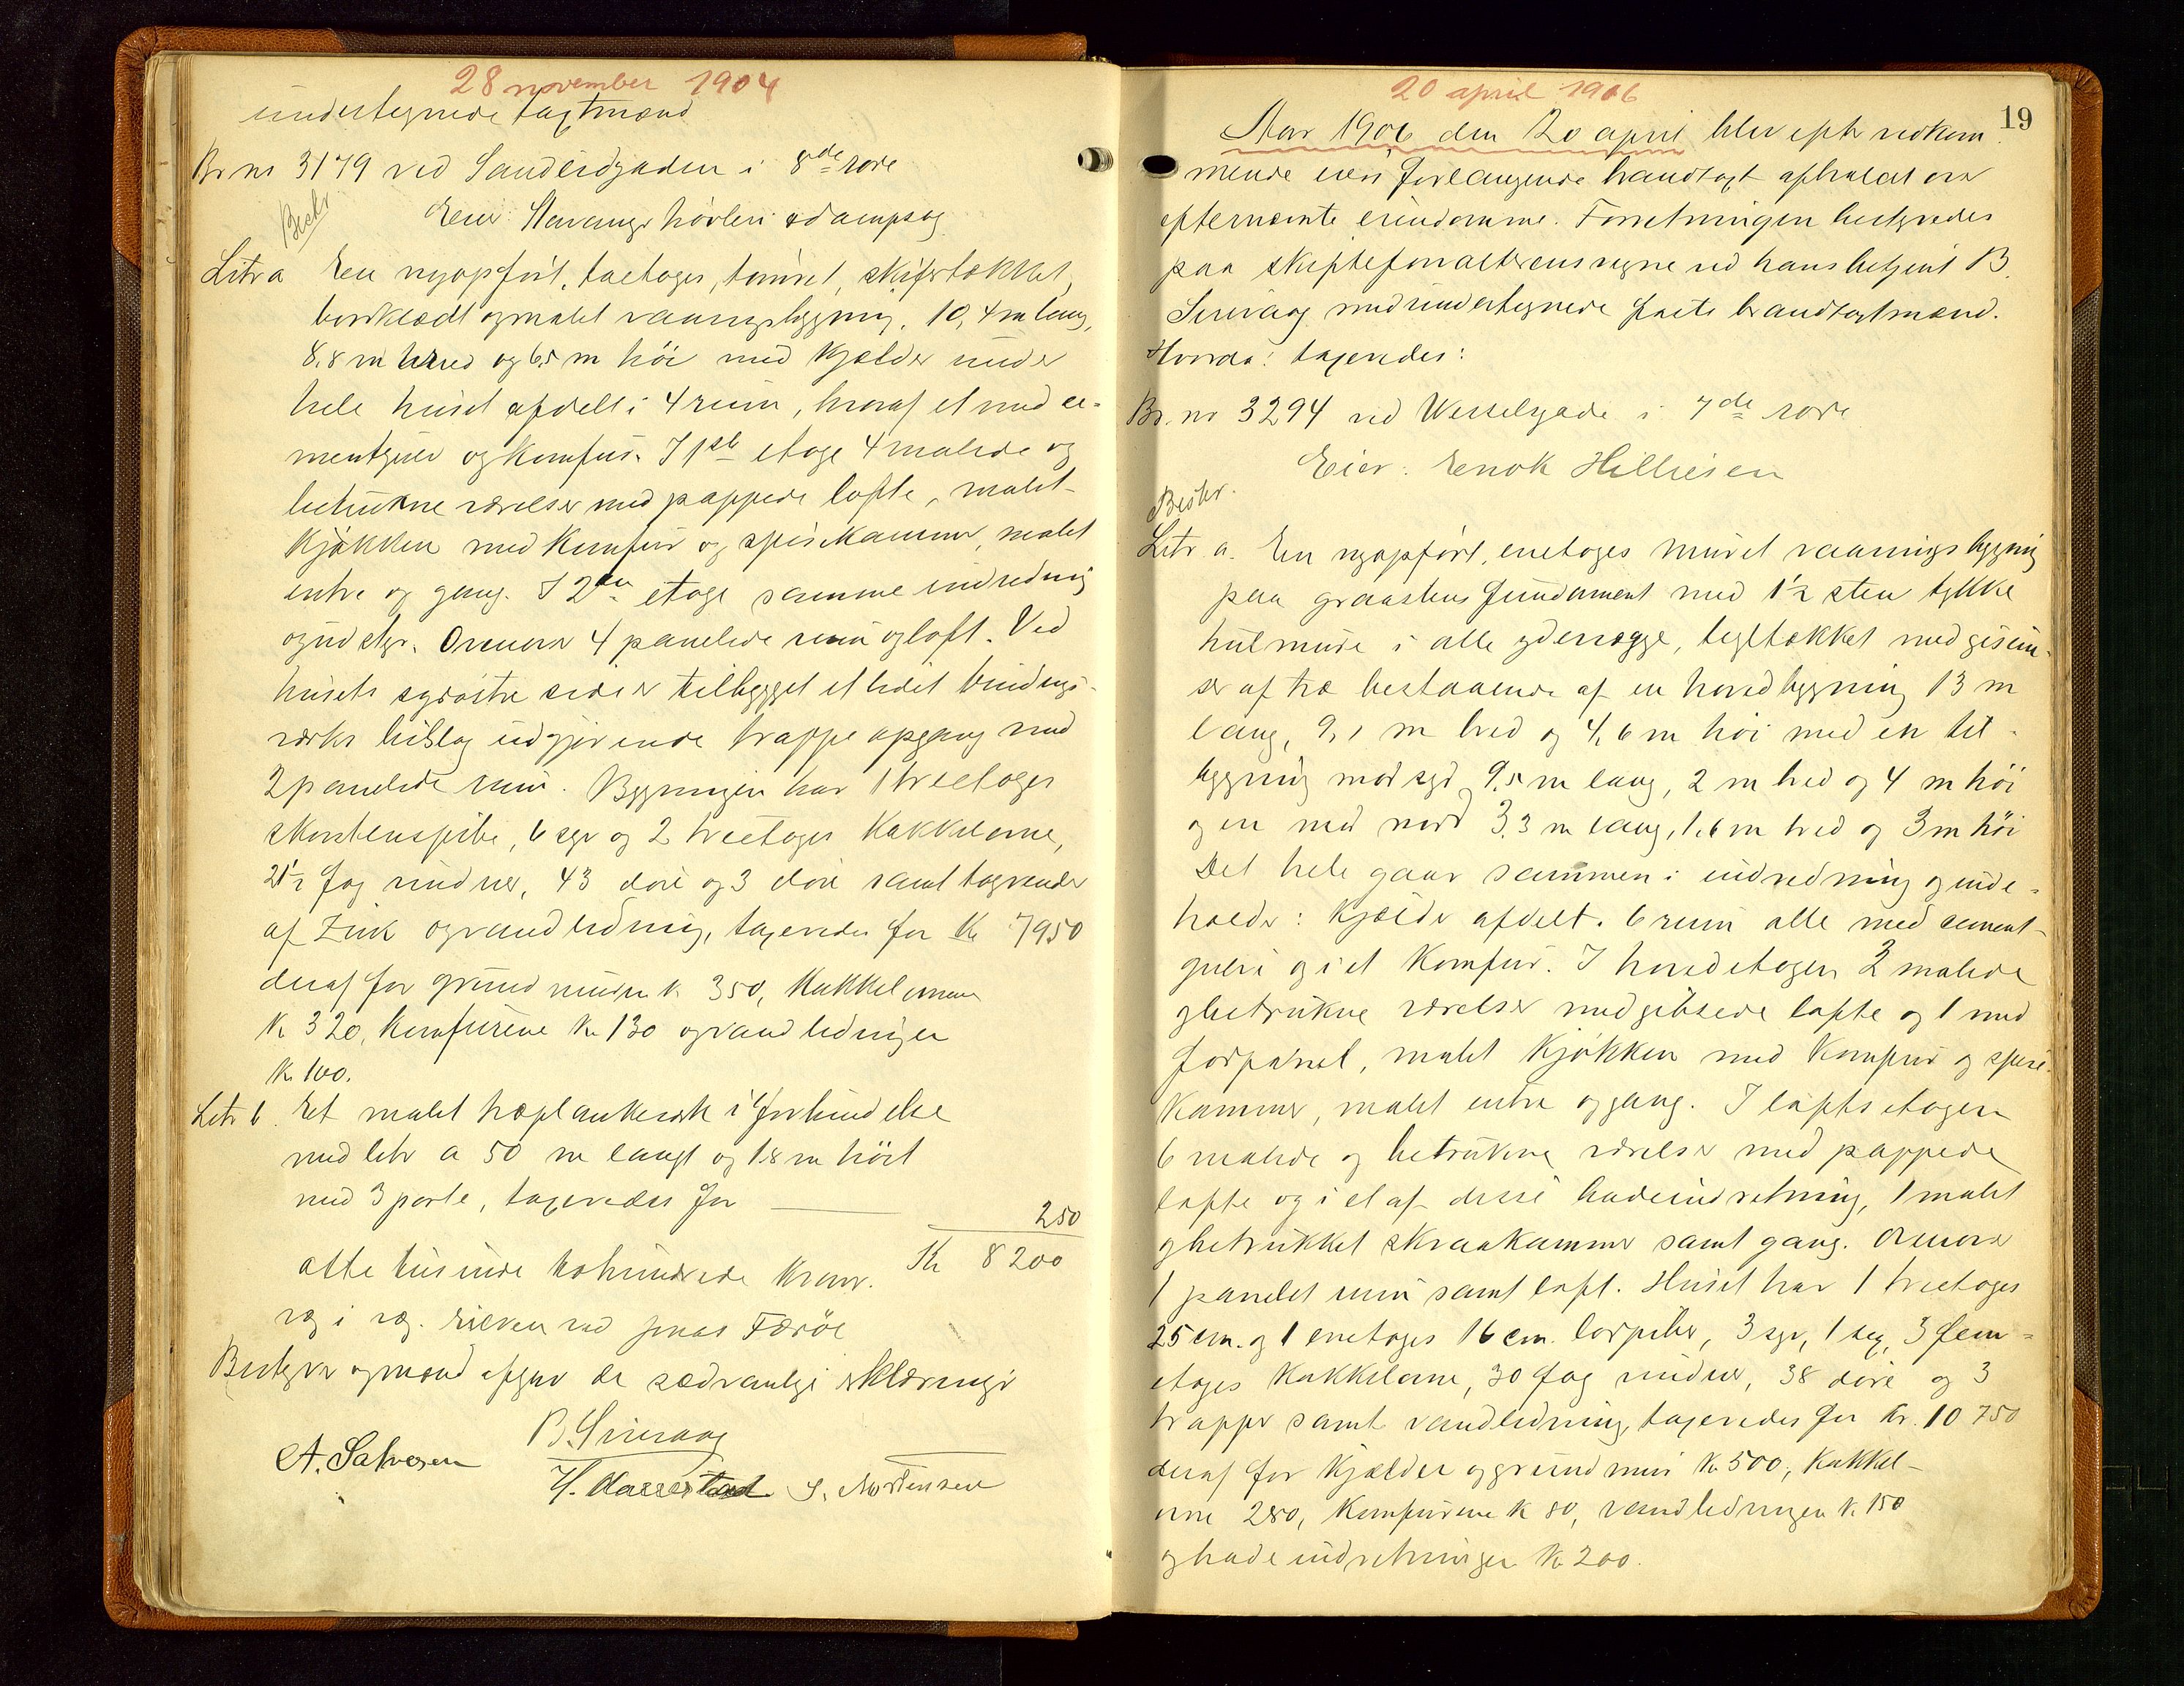 28 november 1904
undertegnede taxtmænd
Br no 3179 ved Sandeidgaden i 8de rode
Beskr
Eier: Stavanger høvleri & dampsag
Litr a En nyopført, toetages, tømret, skifertækket,
bordklædt og malet vaaningsbygning, 10,4 m lang,
8,8 m bred og 6,5 m höi med kjælder under
hele huset afdelt i 4 rum, hvoraf et med ce-
mentgulv og komfur. I 1ste etage 4 malede og
betrukne værelser med pappede lofte, malet
kjøkken med komfur og spisekammer, malet
entre og gang. I 2den etage samme indredning
og udstyr. Ovenover 4 panelede rum og loft. Ved
husets sydöstre side er tilbygget et lidet bindings-
værks bislag udgjörende trappeopgang med
2 panelede rum. Bygningen har 1 treetages
skorstenspibe, 6 sgr og 2 treetages kakkelovne,
21½ fag vinduer, 43 döre og 3 döre samt tagrender
af Zink og vandledning, taxeredes for Kr 7950
deraf for grundmuren k. 350, kakkelovnene
K 320, komfurene Kr 130 og vandledningen
K. 100.
Litr b. Et malet træplankeværk i forbindelse
med litr a 50 m langt og 1,8 m höit
med 3 porte, taxeredes for 250
Kr 8200
otte tusinde tohundrede kroner.
B. Surnaag
A. Salvesen
H. Aarrestad S. Mortensen
20 april 1906
19
Aar 1906 den 20 april blev efter vedkom
mende eiers forlangende brandtaxt afholdt over
efternævnte eiendomme. Forretningen bestyredes
paa skifteforvalterens vegne ved hans betjent B.
med undertegnede faste brandtaxtmænd.
Hvorda! taxeredes:
Br. no 3294 ved Wesselsgade i 7de rode
Eier: Enok Hilliesen
Beskr.
Litr. a. En nyopført, enetages muret vaaningsbygning
paa graastens fundament med 1½ sten tykke
hulmure i alle ydervægge, tegltækket med gesim-
ser af træ bestaaende af en hovedbygning 13 m
lang, 9,1 m bred og 4,6 m höi med en til-
bygning mod syd 9,5 m lang, 2 m bred og 4 m höi
og en mod nord 3,3 m lang, 1,6 m bred og 3 m höi
Det hele gaar sammen i indredning og inde-
holder: kjælder afdelt i 6 rum alle med cement-
gulv og i et komfur. I hovedetagen 3 malede
og betrukne værelser med gibsede lofte og 1 med
forpanel, malet kjøkken med komfur og spise-
kammer, malet entre og gang. I loftsetagen
6 malede og betrukne værelser med pappede
lofte og i et af disse badeindretning, 1 malet
og betrukket skraakammer samt gang. Ovenover
1 panelet rum samt loft. Huset har 1 treetages
25 cm. og 1 enetages 16 cm. 3 sgr, 3 fem-
etages kakkelovne, 30 fag vinduer, 38 döre og 3
trapper samt vandledning, taxeredes for Kr. 10 750
deraf for kjælder og grundmur K. 500, kakkel-
ovne 280, komfurene K 80, vandledningen K. 150
og badeindretningen K 200.